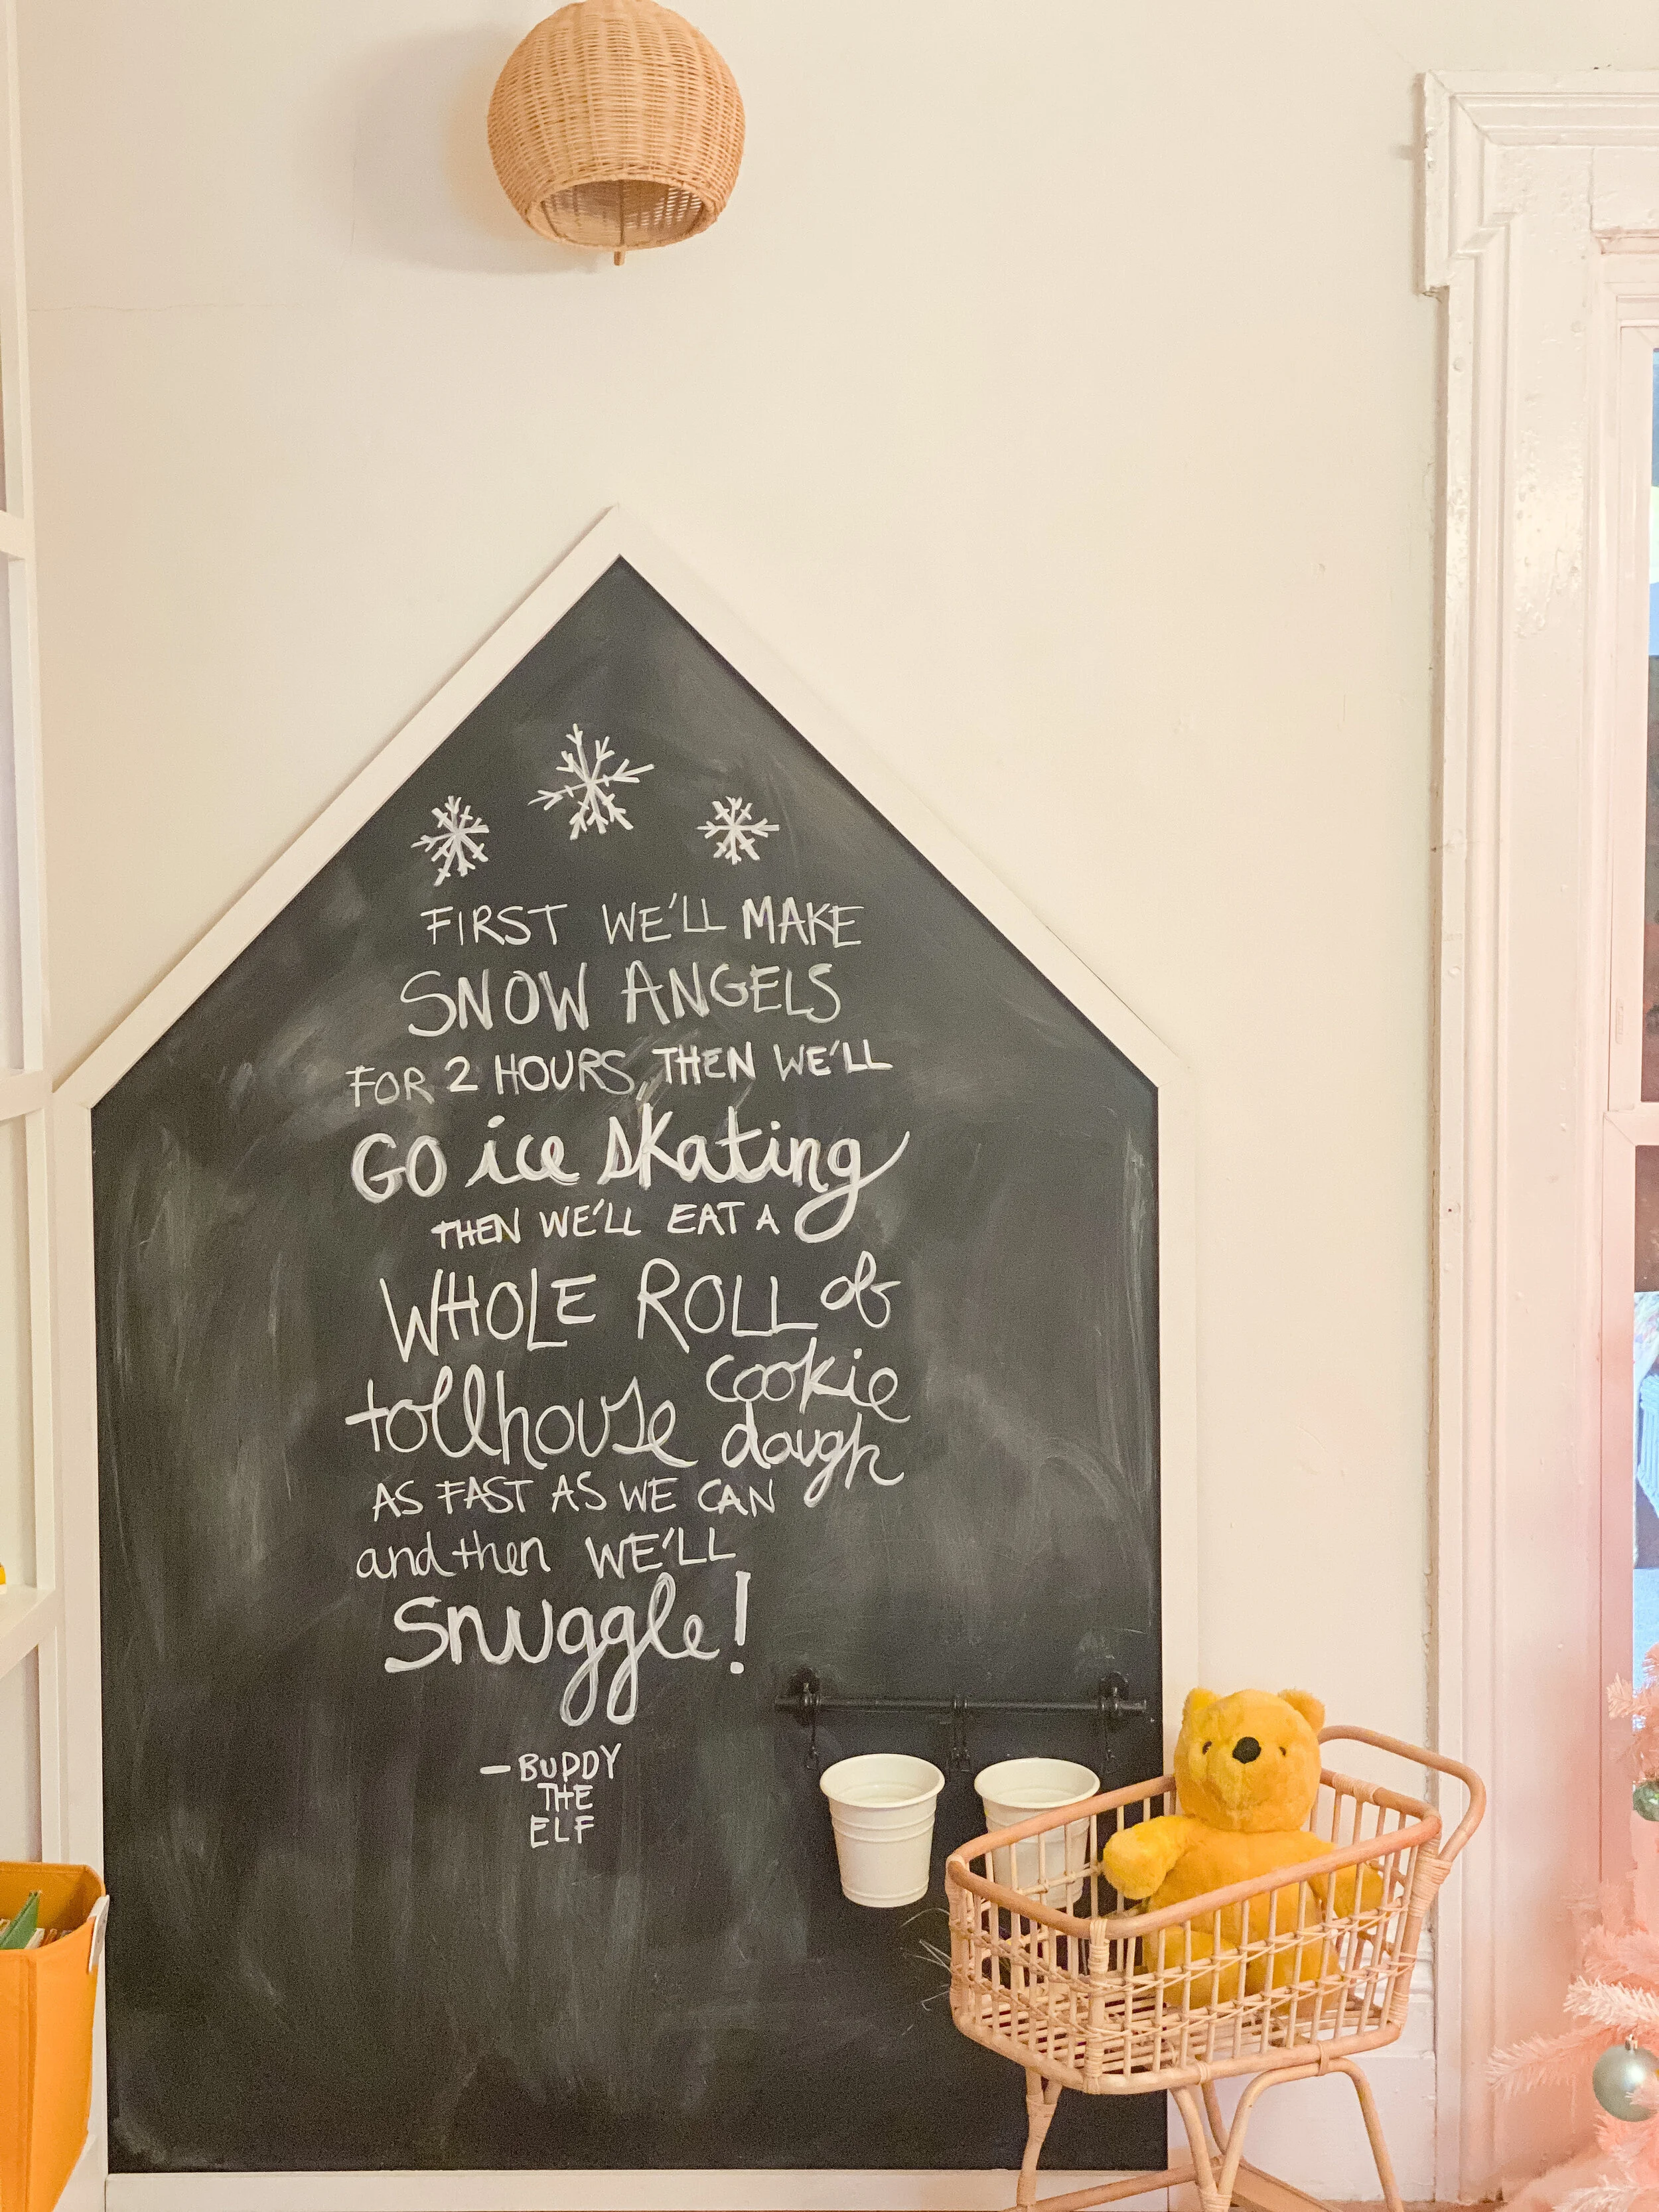 FIRST WE'LL MAKE
SNOW ANGELS
FOR 2 HOURS, THEN WE'LL
GO ice skating
THEN WE'LL EAT A
WHOLE ROLL of
tollhouse cookie
dough
AS FAST AS WE CAN
and then WE'LL
Snuggle!
- BUDDY
THE
ELF